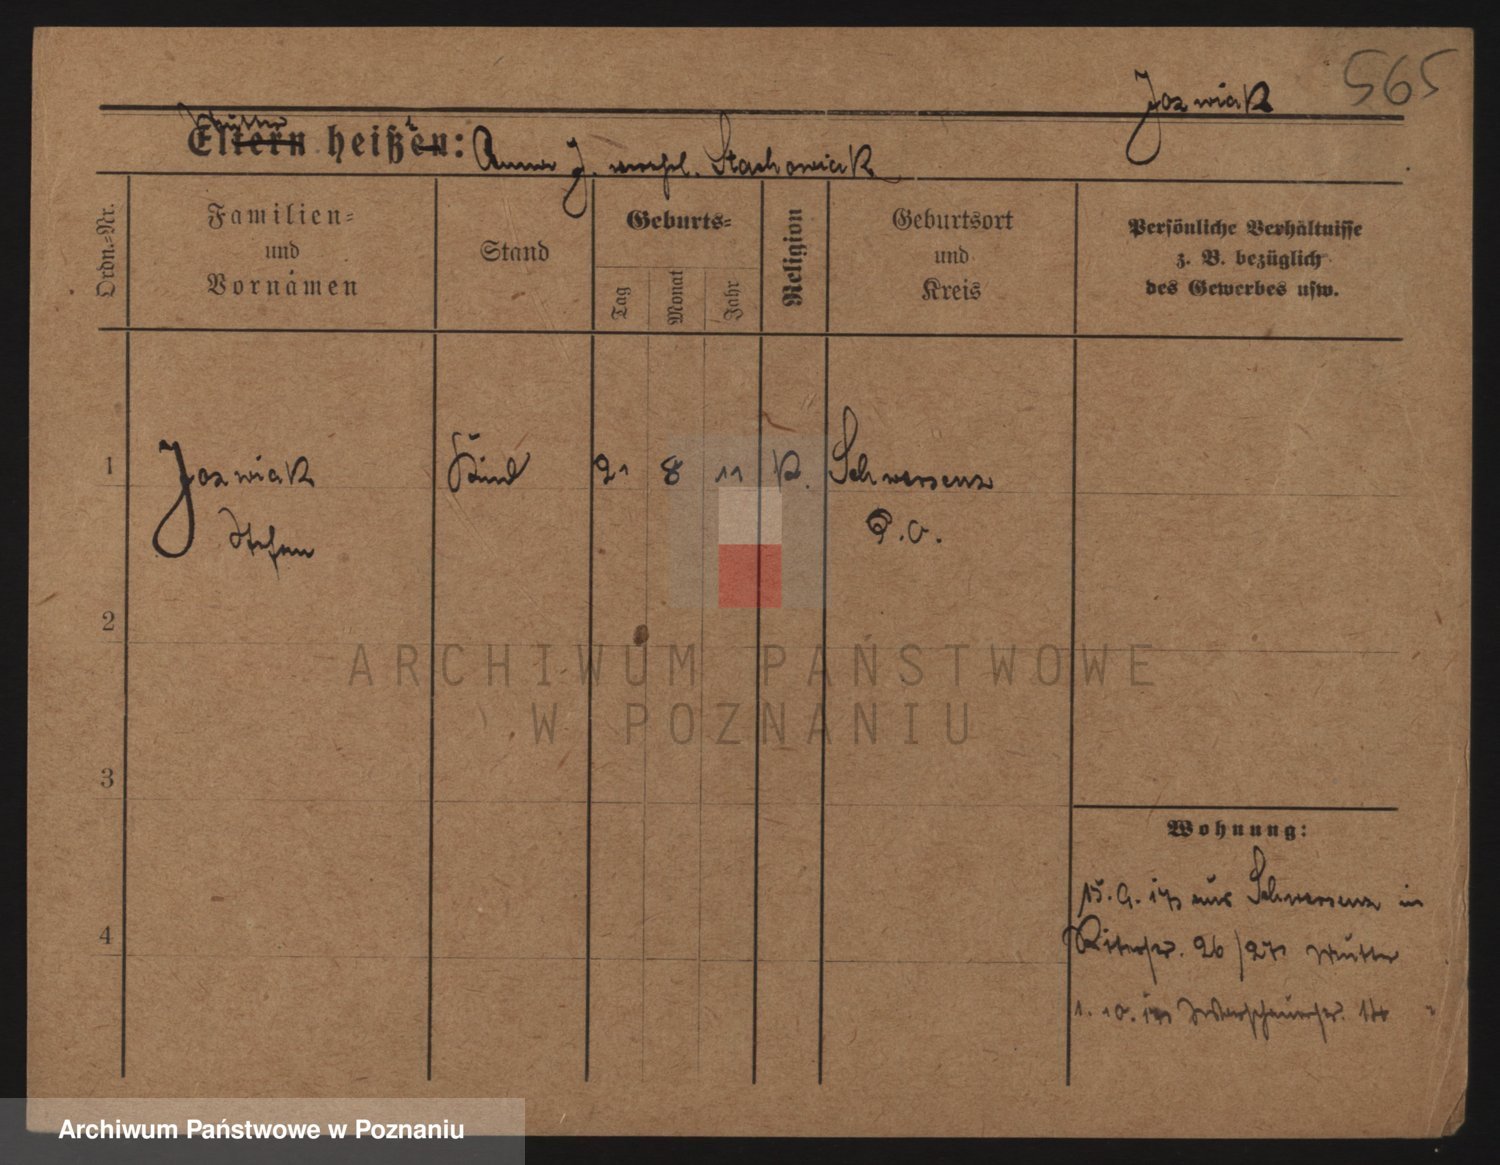 565
Jozwiak
Mutter
Eltern heißen: Anna J. verehl. Stachowiak
Ordn.-Nr.
Familien-
und
Vornamen
Stand
Geburts-
Tag
Monat
Jahr
Religion
Geburtsort
und
Kreis
Persönliche Verhältnisse
z. B. bezüglich
des Gewerbes usw.
1
Jozwiak
Kind
21
8
11
K.
Schwersenz
Stefan
P. O.
2
ARCHIWUM PAŃSTWOWE
W POZNANIU
3
Wohnung:
15. 9. aus Schwersenz in
4
Ritterstr. 26/27 Mutter
1. 10. 14 "
Archiwum Państwowe w Poznaniu